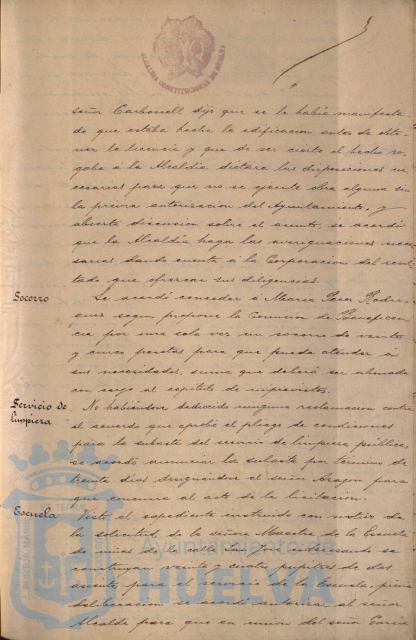 ALCALDIA CONSTITUCIONAL DE HUELVA
señor Carbonell dijo que se le habia manifesta
do que estaba hecha la edificacion antes de obte
ner la licencia y que de ser cierto el hecho ro
gaba a la Alcaldia dictara las disposiciones ne
cesarias para que no se ejecute obra alguna sin
la previa autorizacion del Ayuntamiento, y
abierta discusion sobre el asunto, se acordó
que la Alcaldia haga las averiguaciones nece
sarias dando cuenta á la Corporacion del resul
tado que ofrezcan sus diligencias.
Socorro
Se acordó conceder á Maria Rodri
guez segun propone la Comision de Beneficen
cia por una sola vez un socorro de veinte
y cinco pesetas para que pueda atender á
sus necesidades, suma que deberá ser abonada
con cargo al capitulo de imprevistos.
Servicio de
limpieza
No habiendose deducido ninguna reclamacion contra
el acuerdo que aprobó el pliego de condiciones
para la subasta del servicio de limpieza pública,
se acordó anunciar la subasta por término de
treinta dias designandose al señor Aragon para
que concurra al acto de la licitacion.
Escuela
Visto el expediente instruido con motivo de
la solicitud de la señora Maestra de la Escuela
de niñas de la calle San José interesando se
construyan veinte y cuatro pupitres de dos
asientos para el servicio de la Escuela, previa
deliberacion se acordó autorizar al señor
Alcalde para que en union del señor Garcia
Ayuntamiento de
HUELVA